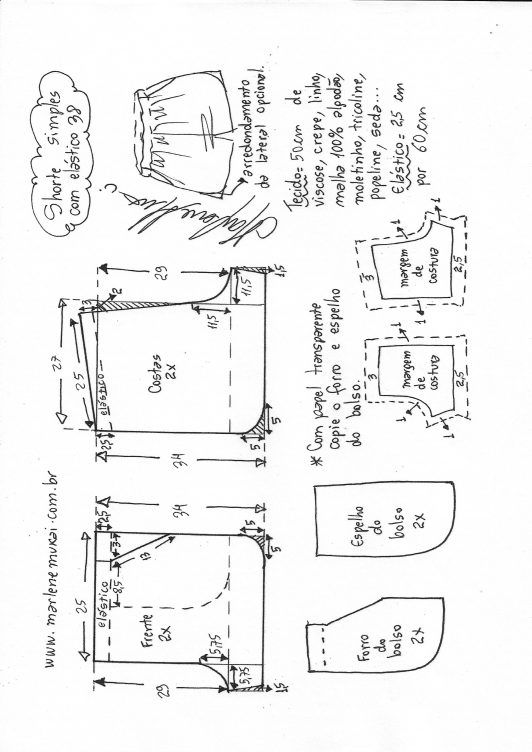 Shorte simples
com elástico 38
arredondamento
da lateral opcional.
Tecido = 50cm de
viscose, crepe, linho,
malha 100% algodão,
moletinho, tricoline,
popeline, seda...
Elástico = 2,5 cm
por 60cm
www.marlenemukai.com.br
25
elástico
2,5
8,5
3
13
34
Frente
2x
29
5,75
5,75
1,5
5
5
27
25
3
2
elástico
2,5
29
Costas
2x
11,5
11,5
1,5
34
5
5
* Com papel transparente
copie o forro e espelho
do bolso.
3
margem
de
costura
2,5
1
1
3
margem
de
costura
2,5
1
1
1
Forro
do
bolso
2x
Espelho
do
bolso
2x